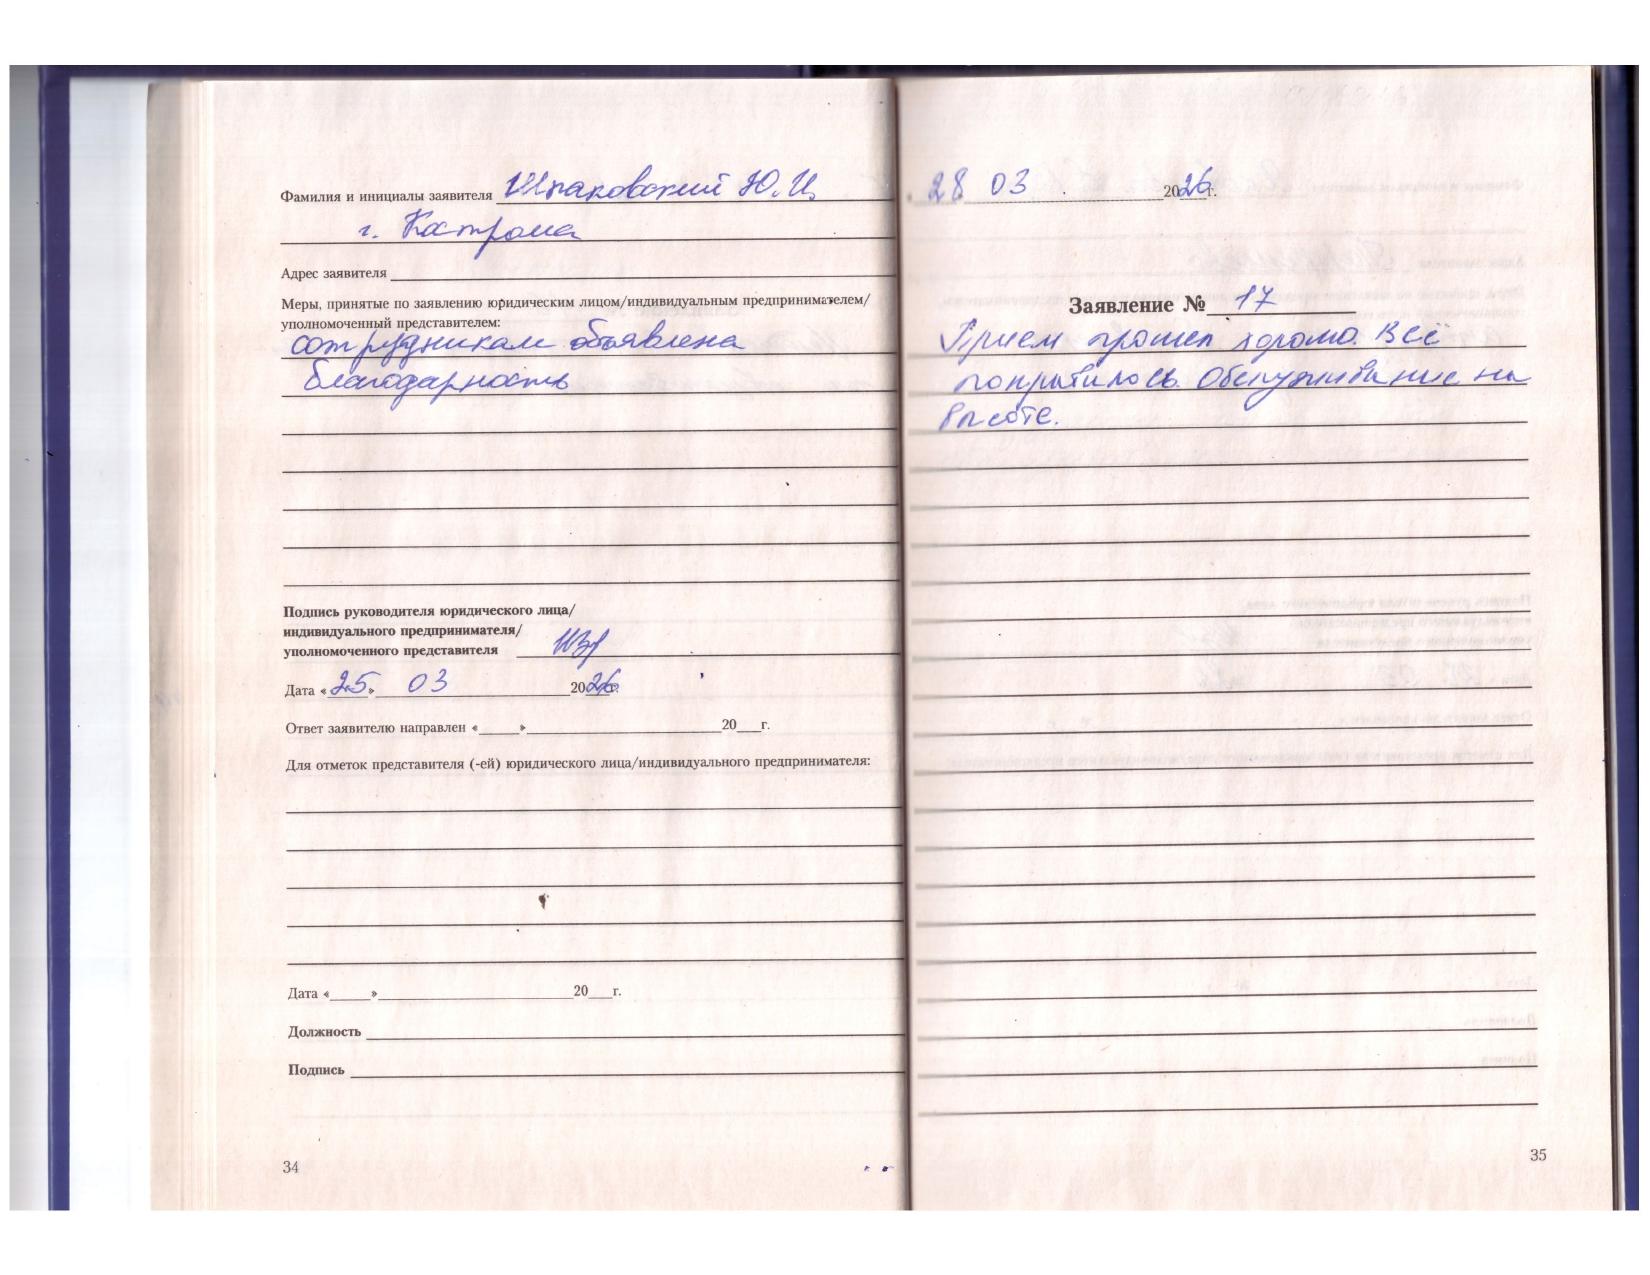 Фамилия и инициалы заявителя Шпаковский Ю.И,
г. Кострома
Адрес заявителя
Меры, принятые по заявлению юридическим лицом/индивидуальным предпринимателем/
уполномоченный представителем:
сотрудникам объявлена
благодарность
Подпись руководителя юридического лица/
индивидуального предпринимателя/
уполномоченного представителя
Дата «25» 03 2026г.
Ответ заявителю направлен «_____»_____20___г.
Для отметок представителя (-ей) юридического лица/индивидуального предпринимателя:
Дата «_____»_____20___г.
Должность
Подпись
34
28 03 2026г.
Заявление № 17
Прием прошел хорошо. Всё
понравилось. Обслуживание на
высоте.
35